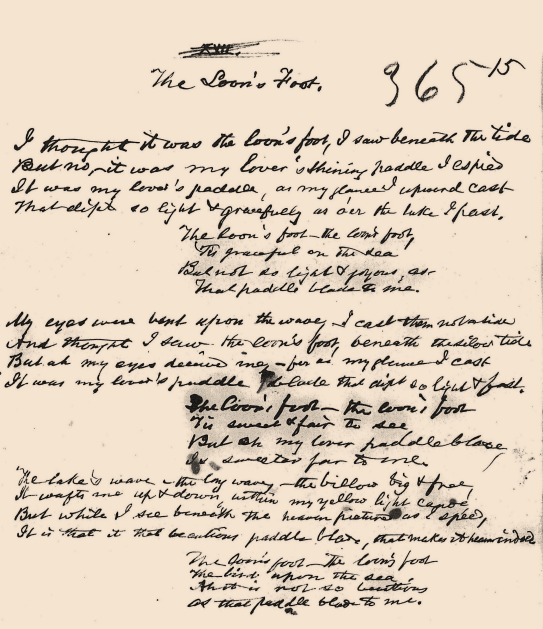 XVII.
The Loon's Foot.
365 15
I thought it was the loon's foot, I saw beneath the tide
But no, it was my lover's shining paddle I espied
It was my lover's paddle, as my glance I upward cast
That dipt so light & gracefully as o'er the lake I past.
The loon's foot – the loon's foot,
Tis graceful on the sea
But not so light & joyous, as
That paddle blade to me.
My eyes were bent upon the wave, I cast them not aside
And thought I saw the loon's foot, beneath the silver tide
But ah my eyes deceived me – for as my glance I cast
It was my lover's paddle blade that dipt so light & fast.
The loon's foot – the loon's foot
Tis sweet & fair to see
But oh my lover paddle blade
Is sweeter far to me.
The lake's wave – the long wave – the billow big & free,
It wafts me up & down, within my yellow light canoe
But while I see beneath the heaven pictured as I speed,
It is that beautious paddle blade, that makes it heaven indeed
The loon's foot – the loon's foot
The bird upon the sea
Ah it is not so beautious
As that paddle blade to me.